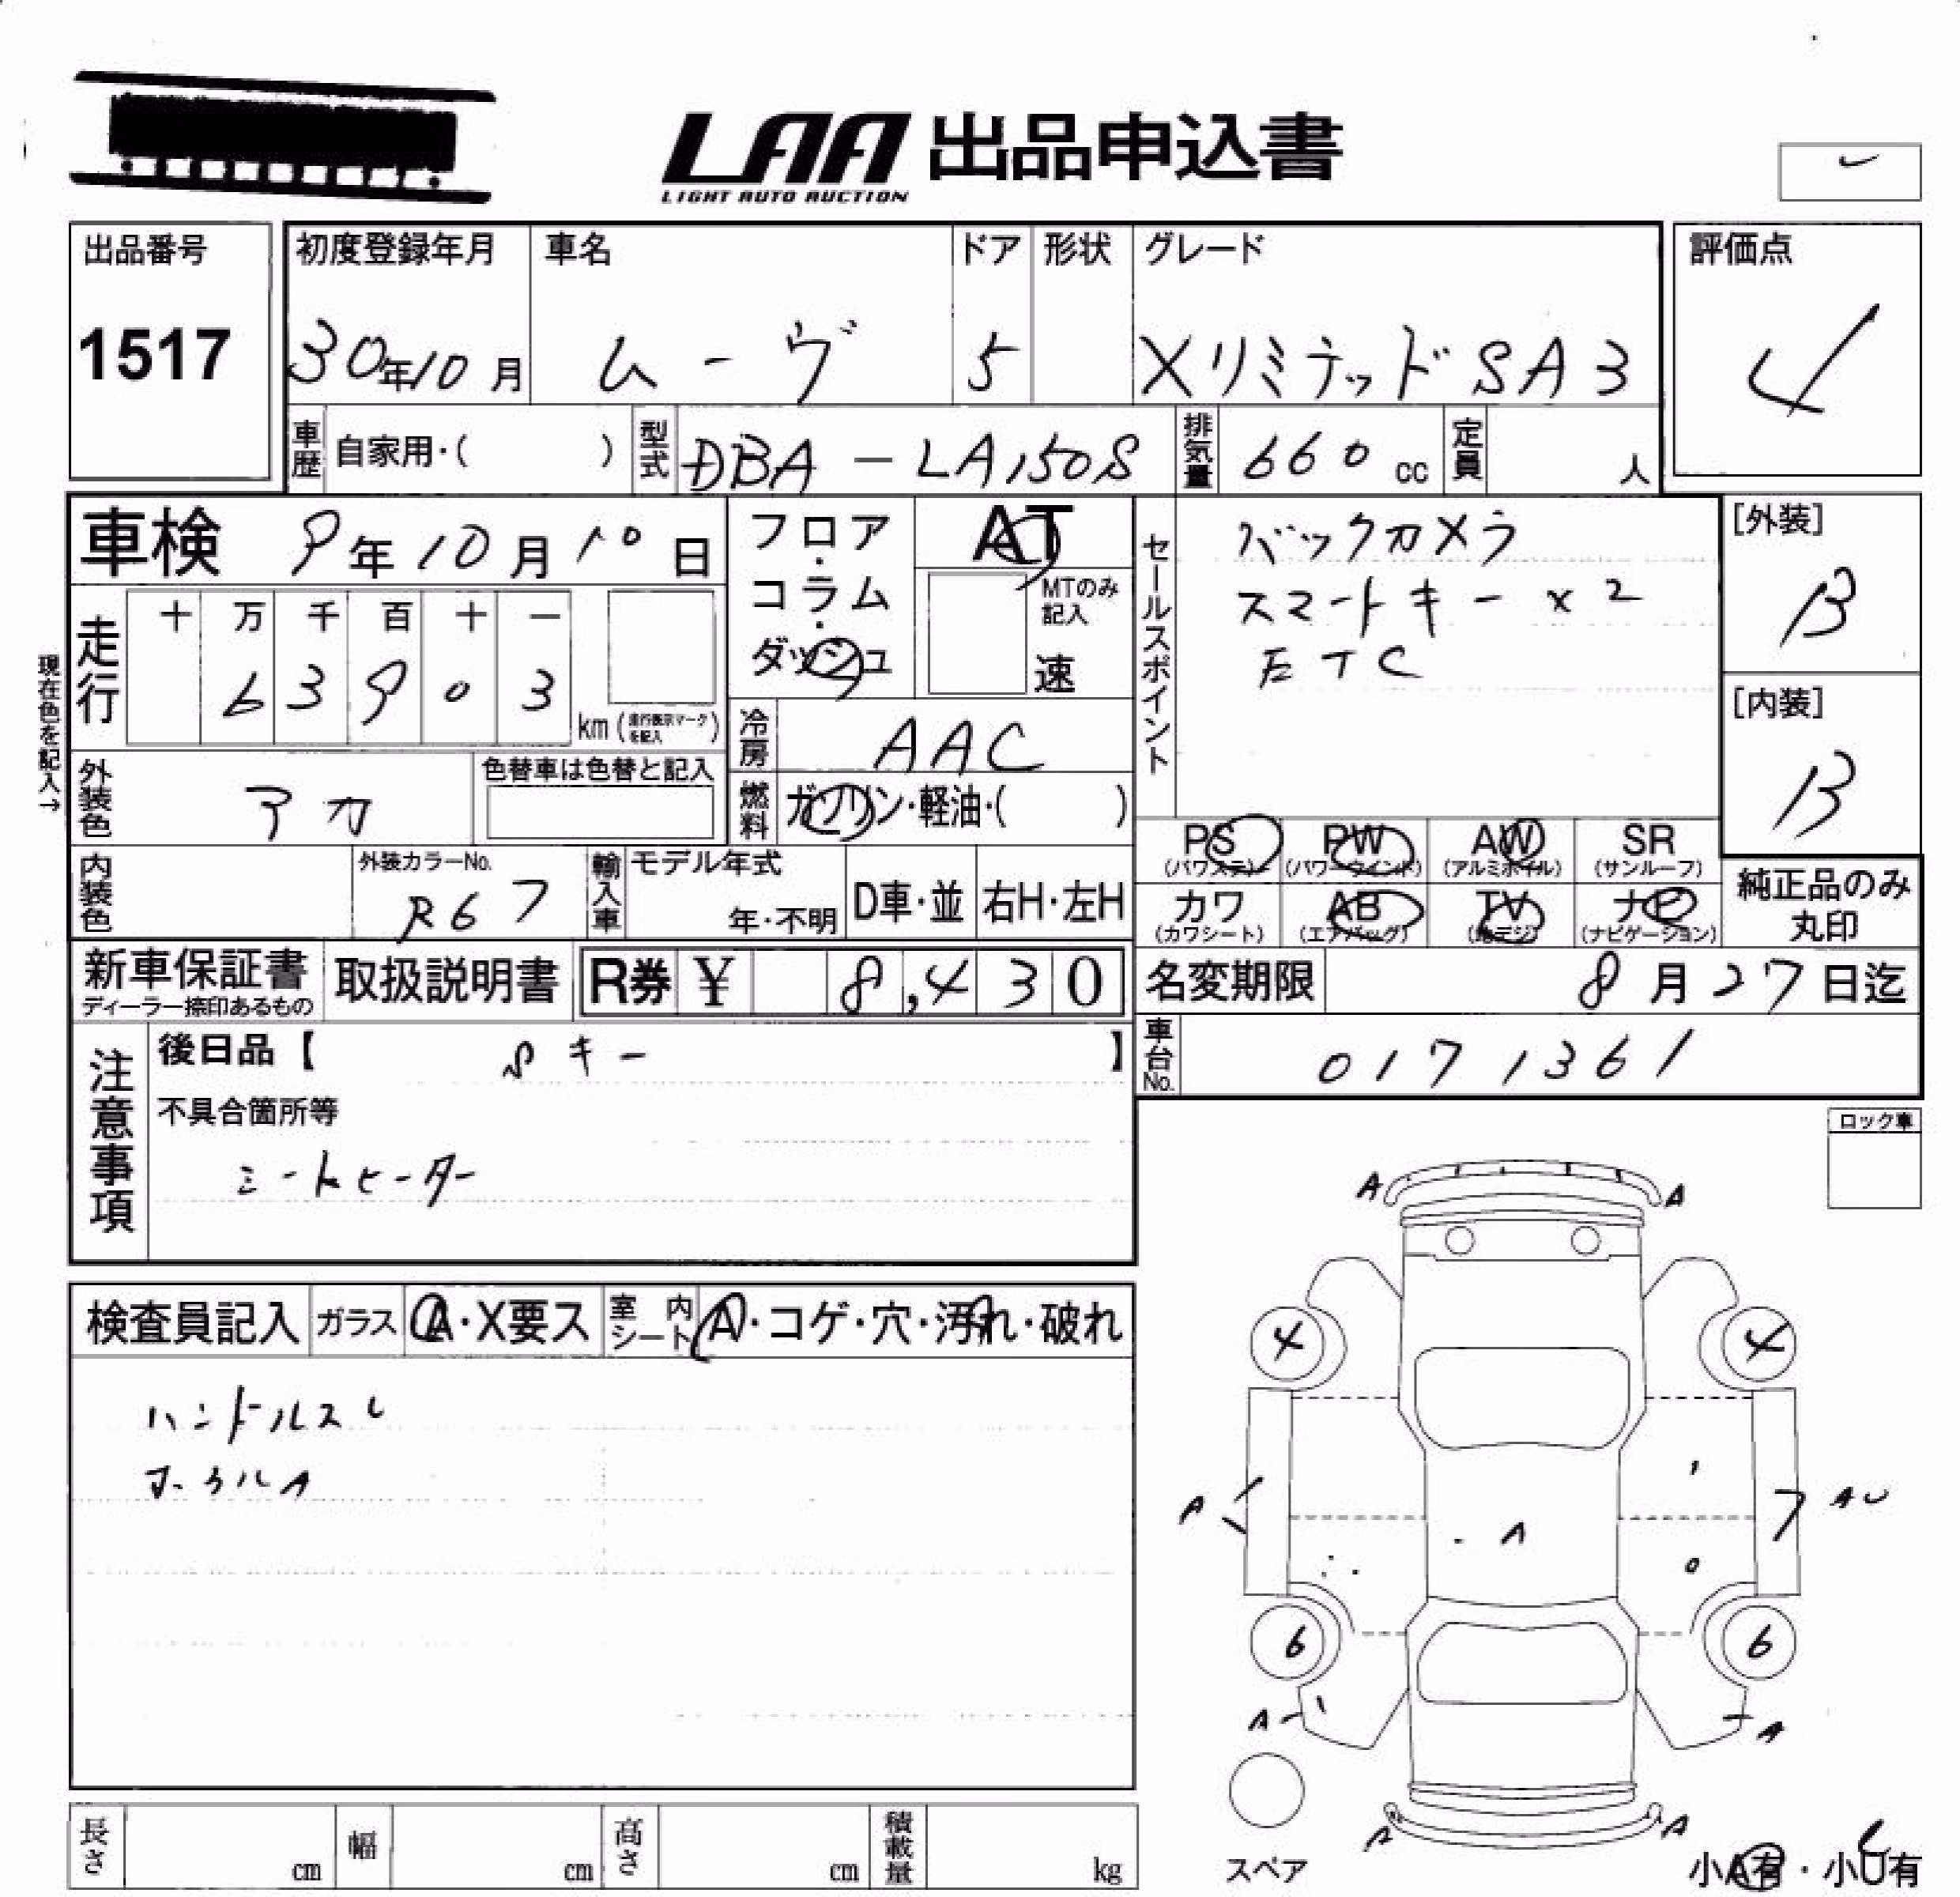 LAA 出品申込書
LIGHT AUTO AUCTION
出品番号
1517
初度登録年月
30年10月
車名
ムーヴ
ドア
5
形状
グレード
XリミテッドSA3
評価点
4
車歴
自家用・( )
型式
DBA-LA150S
排気量
660 cc
定員
人
車検 9年10月10日
フロア・コラム・ダッシュ
AT
MTのみ記入
速
セールスポイント
バックカメラ
スマートキー×2
ETC
[外装]
B
[内装]
B
現在色を記入→
走行
十 万 千 百 十 一
6 3 9 0 3
km (走行表示マークを記入)
冷房
AAC
外装色
アカ
色替車は色替と記入
燃料
ガソリン・軽油・( )
PS (パワステ)
PW (パワーウインド)
AW (アルミホイル)
SR (サンルーフ)
カワ (カワシート)
AB (エアバッグ)
TV (地デジ)
ナビ (ナビゲーション)
純正品のみ丸印
内装色
外装カラーNo.
R67
輸入車
モデル年式
年・不明
D車・並
右H・左H
新車保証書
ディーラー捺印あるもの
取扱説明書
R券 ¥ 8,430
名変期限
8月27日迄
車台No.
0171361
注意事項
後日品【 Sキー 】
不具合箇所等
シートヒーター
ロック車
検査員記入
ガラス
A・X要ス
室内シート
A・コゲ・穴・汚れ・破れ
ハンドルスレ
ホイルA
A A
4 4
A AU
A
6 6
A A
A A
スペア
小A有・小U有
長さ cm
幅 cm
高さ cm
積載量 kg